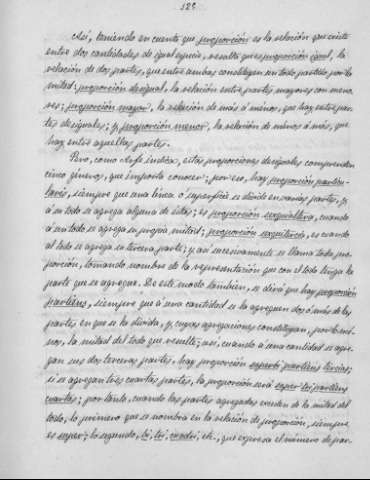 122
Así, teniendo en cuenta que proporción es la relación que existe
entre dos cantidades de igual especie, resulta que es proporción igual, la
relación de dos partes, que entre ambas constituyen un todo partido por la
mitad; proporción desigual, la relación entre partes mayores con meno-
res; proporción mayor, la relación de más á menos, que hay entre par-
tes desiguales; y proporción menor, la relación de menos á más, que
hay entre aquellas partes.
Pero, como Arfe indica, estas proporciones desiguales comprenden
cinco géneros, que importa conocer; por eso, hay proporción particu-
laris, siempre que una línea ó superficie se divide en varias partes, y
á un todo se agrega alguna de éstas; es proporción sexquialtera, cuando
á un todo se agrega su propia mitad; proporción sexquitercia, es cuando
al todo se agrega su tercera parte; y así sucesivamente se llama toda pro-
porción, tomando nombre de la representación que con el todo tenga la
parte que se agregue. De este modo también, se dirá que hay proporción
partiens, siempre que á una cantidad se la agreguen dos ó más de las
partes en que se la divida, y cuyas agregaciones constituyan, por lo me-
nos, la mitad del todo que resulte; así, cuando á una cantidad se agre-
gan sus dos terceras partes, hay proporción superbi partiens tercias;
si se agregan tres cuartas partes, la proporción será super tri partiens
cuartas; por tanto, cuando las partes agregadas exceden de la mitad del
todo, lo primero que se nombra en la relación de proporción, siempre
es super; lo segundo, bi, tri, cuadri, etc., que expresa el número de par-